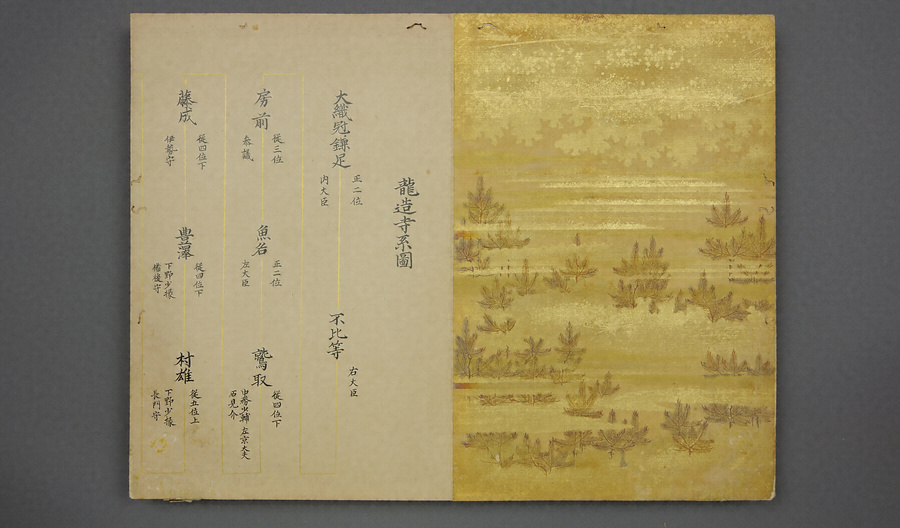 龍造寺系圖
大織冠鎌足
正二位
内大臣
不比等
右大臣
房前
從三位
参議
魚名
正二位
左大臣
鷲取
從四位下
中務少輔 左京大夫
石見介
藤成
從四位下
伊勢守
豊澤
從四位下
下野少掾
備後守
村雄
從五位上
下野少掾
長門守